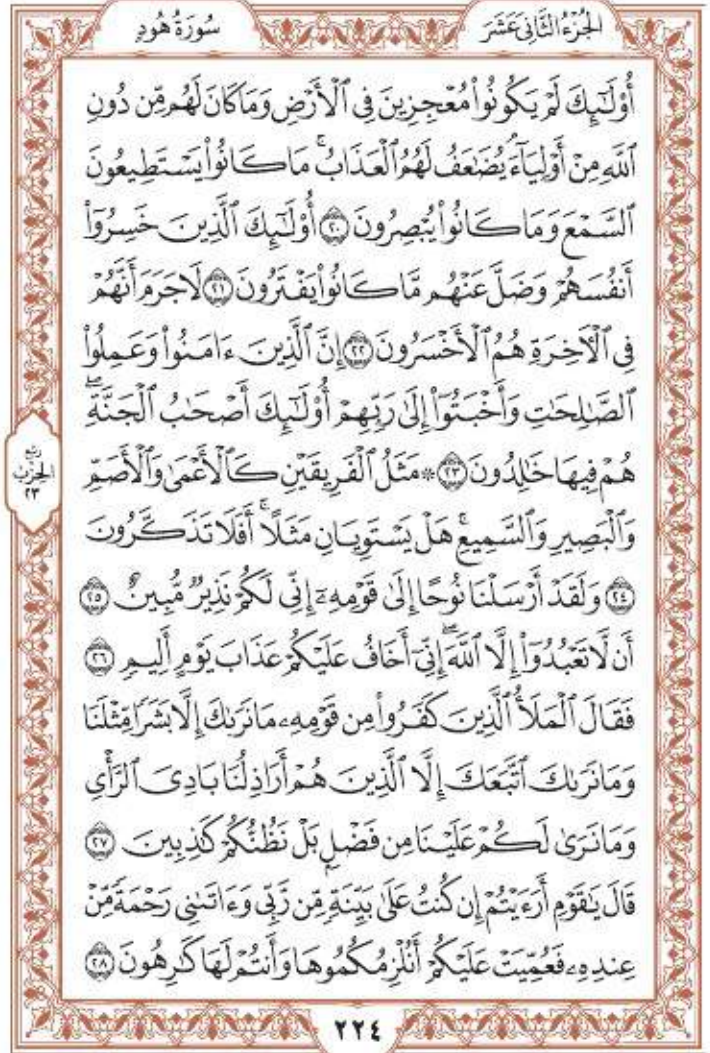 الجُزْءُ الثَّانِي عَشَرَ
سُورَةُ هُودٍ
أُو۟لَـٰٓئِكَ لَمْ يَكُونُوا۟ مُعْجِزِينَ فِى ٱلْأَرْضِ وَمَا كَانَ لَهُم مِّن دُونِ
ٱللَّهِ مِنْ أَوْلِيَآءَ ۘ يُضَـٰعَفُ لَهُمُ ٱلْعَذَابُ ۚ مَا كَانُوا۟ يَسْتَطِيعُونَ
ٱلسَّمْعَ وَمَا كَانُوا۟ يُبْصِرُونَ ٢٠ أُو۟لَـٰٓئِكَ ٱلَّذِينَ خَسِرُوٓا۟
أَنفُسَهُمْ وَضَلَّ عَنْهُم مَّا كَانُوا۟ يَفْتَرُونَ ٢١ لَا جَرَمَ أَنَّهُمْ
فِى ٱلْـَٔاخِرَةِ هُمُ ٱلْأَخْسَرُونَ ٢٢ إِنَّ ٱلَّذِينَ ءَامَنُوا۟ وَعَمِلُوا۟
ٱلصَّـٰلِحَـٰتِ وَأَخْبَتُوٓا۟ إِلَىٰ رَبِّهِمْ أُو۟لَـٰٓئِكَ أَصْحَـٰبُ ٱلْجَنَّةِ ۖ
هُمْ فِيهَا خَـٰلِدُونَ ٢٣ ۞ مَثَلُ ٱلْفَرِيقَيْنِ كَٱلْأَعْمَىٰ وَٱلْأَصَمِّ
وَٱلْبَصِيرِ وَٱلسَّمِيعِ ۚ هَلْ يَسْتَوِيَانِ مَثَلًا ۚ أَفَلَا تَذَكَّرُونَ
٢٤ وَلَقَدْ أَرْسَلْنَا نُوحًا إِلَىٰ قَوْمِهِۦٓ إِنِّى لَكُمْ نَذِيرٌ مُّبِينٌ ٢٥
أَن لَّا تَعْبُدُوٓا۟ إِلَّا ٱللَّهَ ۖ إِنِّىٓ أَخَافُ عَلَيْكُمْ عَذَابَ يَوْمٍ أَلِيمٍ ٢٦
فَقَالَ ٱلْمَلَأُ ٱلَّذِينَ كَفَرُوا۟ مِن قَوْمِهِۦ مَا نَرَىٰكَ إِلَّا بَشَرًا مِّثْلَنَا
وَمَا نَرَىٰكَ ٱتَّبَعَكَ إِلَّا ٱلَّذِينَ هُمْ أَرَاذِلُنَا بَادِىَ ٱلرَّأْىِ
وَمَا نَرَىٰ لَكُمْ عَلَيْنَا مِن فَضْلٍۭ بَلْ نَظُنُّكُمْ كَـٰذِبِينَ ٢٧
قَالَ يَـٰقَوْمِ أَرَءَيْتُمْ إِن كُنتُ عَلَىٰ بَيِّنَةٍ مِّن رَّبِّى وَءَاتَىٰنِى رَحْمَةً مِّنْ
عِندِهِۦ فَعُمِّيَتْ عَلَيْكُمْ أَنُلْزِمُكُمُوهَا وَأَنتُمْ لَهَا كَـٰرِهُونَ ٢٨
رُبْع
الحِزْب
٢٣
٢٢٤